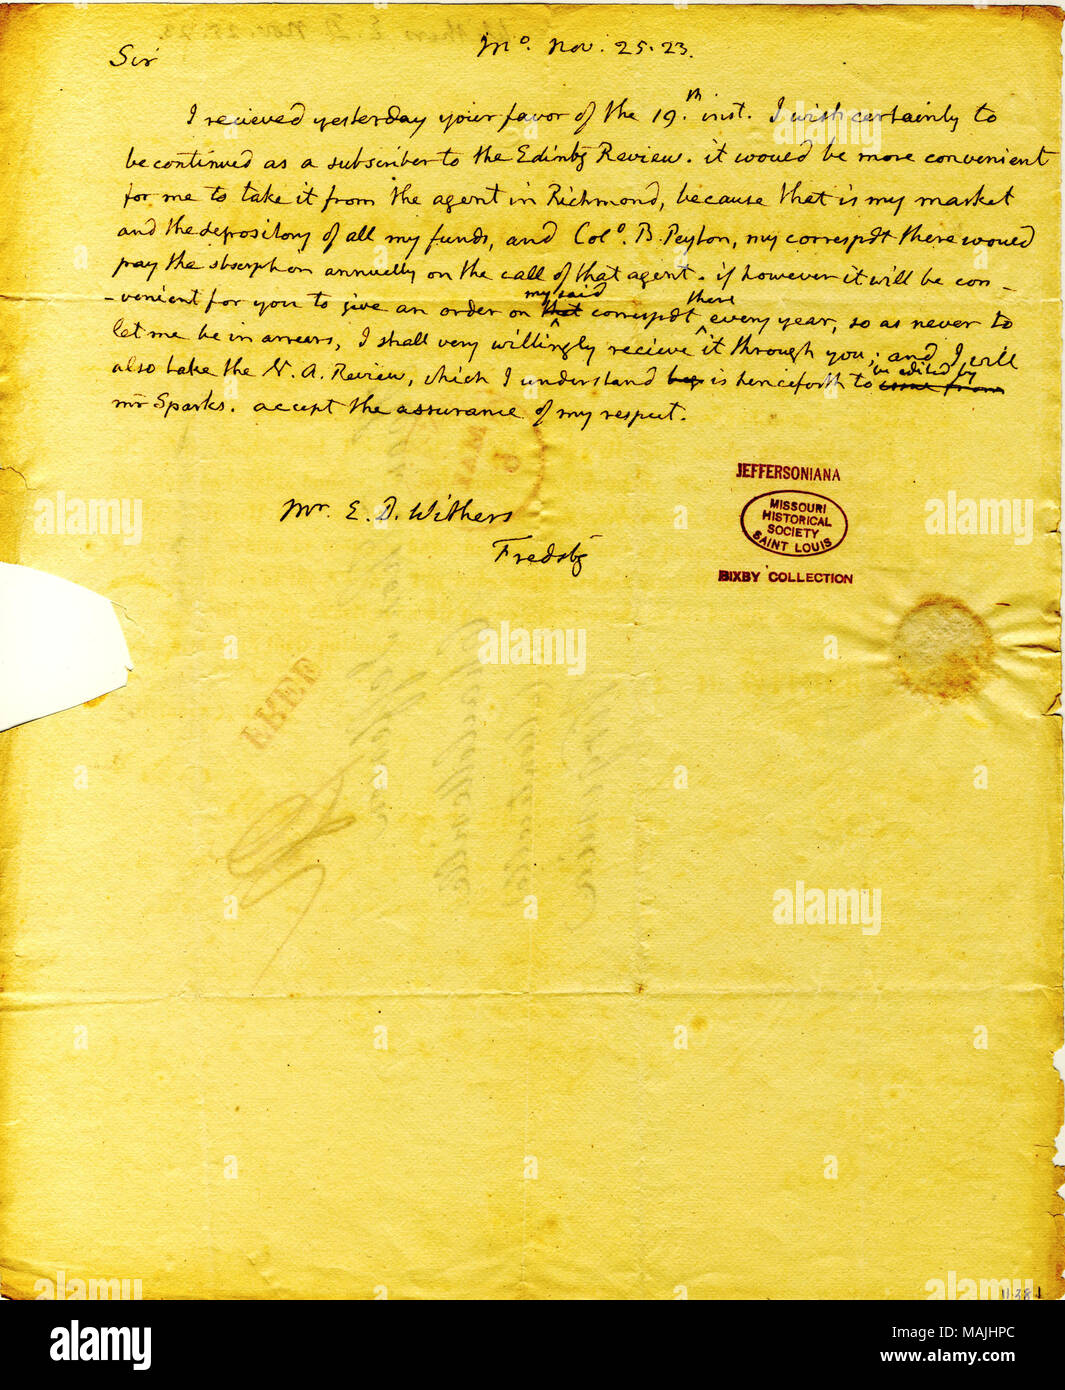 Sir Mo. Nov. 25. 23.
I recieved yesterday your favor of the 19.th inst. I wish certainly to
be continued as a subscriber to the Edinbg Review. it would be more convenient
for me to take it from the agent in Richmond, because that is my market
and the depository of all my funds, and Colo. B. Peyton, my correspdt there would
pay the sbscrption annually on the call of that agent. if however it will be con-
-venient for you to give an order on that my said correspdt there every year, so as never to
let me be in arrears, I shall very willingly recieve it through you; and I will
also take the N. A. Review, which I understand is henceforth to come from be edited by
mr Sparks. accept the assurance of my respect.
Mr. E. D. Withers
Fredsbg
JEFFERSONIANA
MISSOURI
HISTORICAL
SOCIETY
SAINT LOUIS
BIXBY COLLECTION
FREE
MAR
6
1138
alamy
Image ID: MAJHPC
www.alamy.com